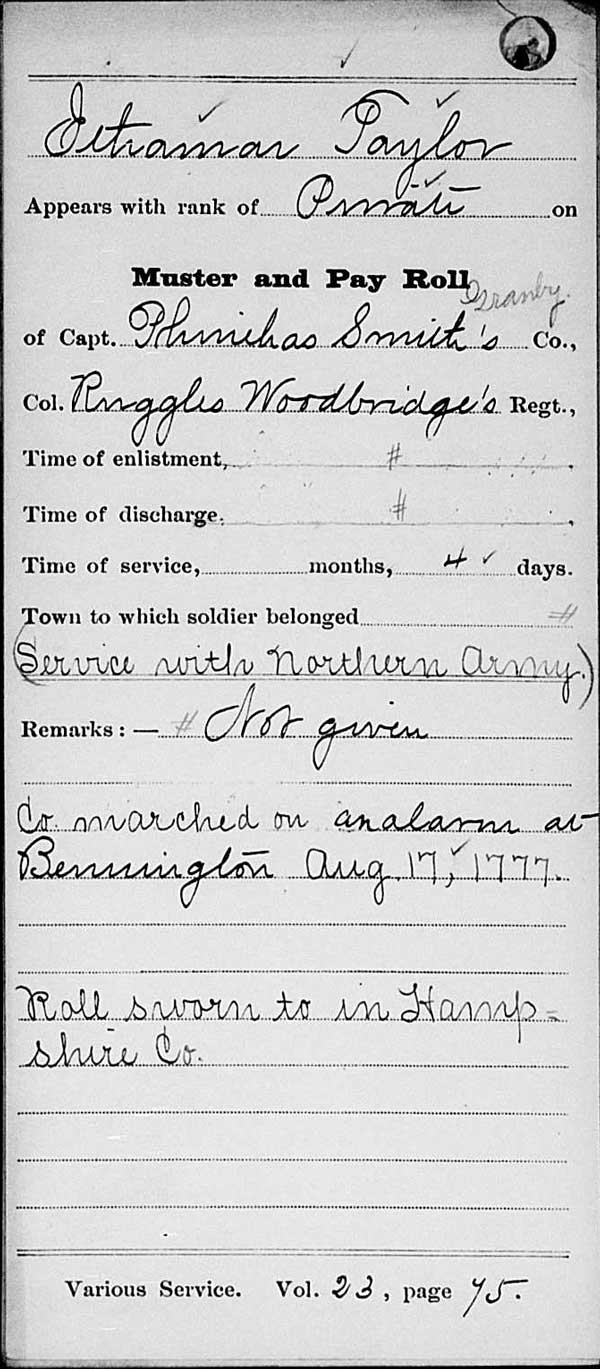 Ithamar Taylor
Appears with rank of Private on
Muster and Pay Roll
Granby.
of Capt. Phinehas Smith's Co.,
Col. Ruggles Woodbridge's Regt.,
Time of enlistment, #
Time of discharge, #
Time of service, months, 4 days.
Town to which soldier belonged #
(Service with Northern Army.)
Remarks: — # Not given
Co. marched on an alarm at
Bennington Aug. 17, 1777.
Roll sworn to in Hamp-
shire Co.
Various Service. Vol. 23, page 75.